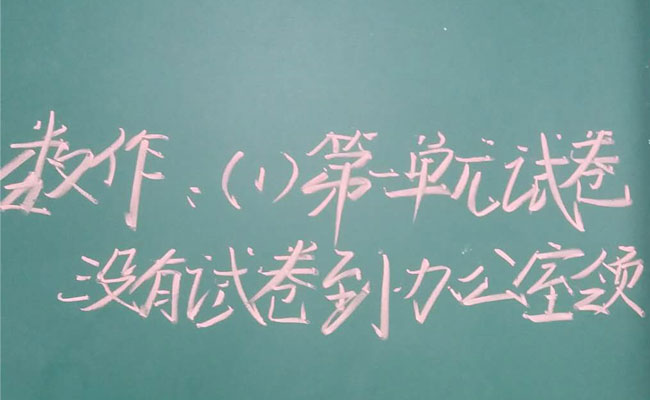 数作：(1)第一单元试卷
没有试卷到办公室领